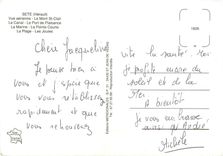 SETE (Hérault)
Vue aérienne - Le Mont St-Clair
Le Canal - Le Port de Plaisance
La Marine - La Pointe Courte
La Plage - Les Joutes
Chère Jacqueline
Je pense bien à
vous et j'espère que
vous vous rétablissez
rapidement et que
vous retrouverez
vite la santé. Ici
je profite encore du
soleil et de la
mer.
A bientôt
je vous embrasse
ainsi qu'André
Michèle